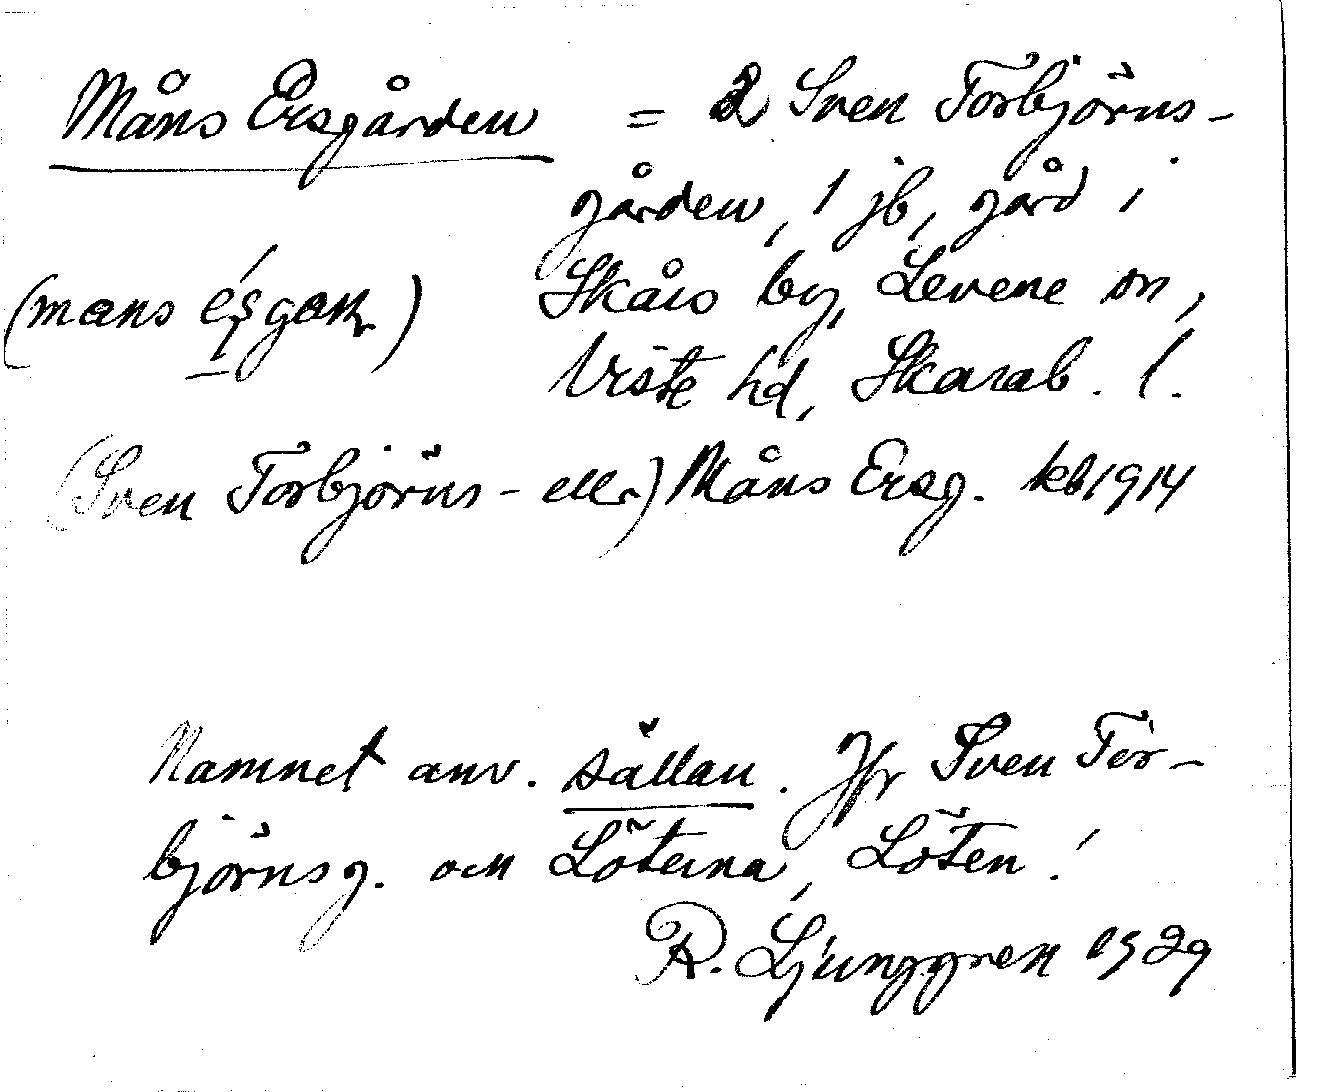 Måns Ersgården = 2 Sven Torbjörns-
gården, 1 jb, gård i
(mans ésgɑn) Skårs by, Levene sn,
Viste hd, Skarab. l.
(Sven Torbjörns- eller) Måns Ersg. kb 1914
Namnet anv. sällan. Jfr Sven Tor-
björnsg. och Löterna, Löten!
R. Ljunggren 1929